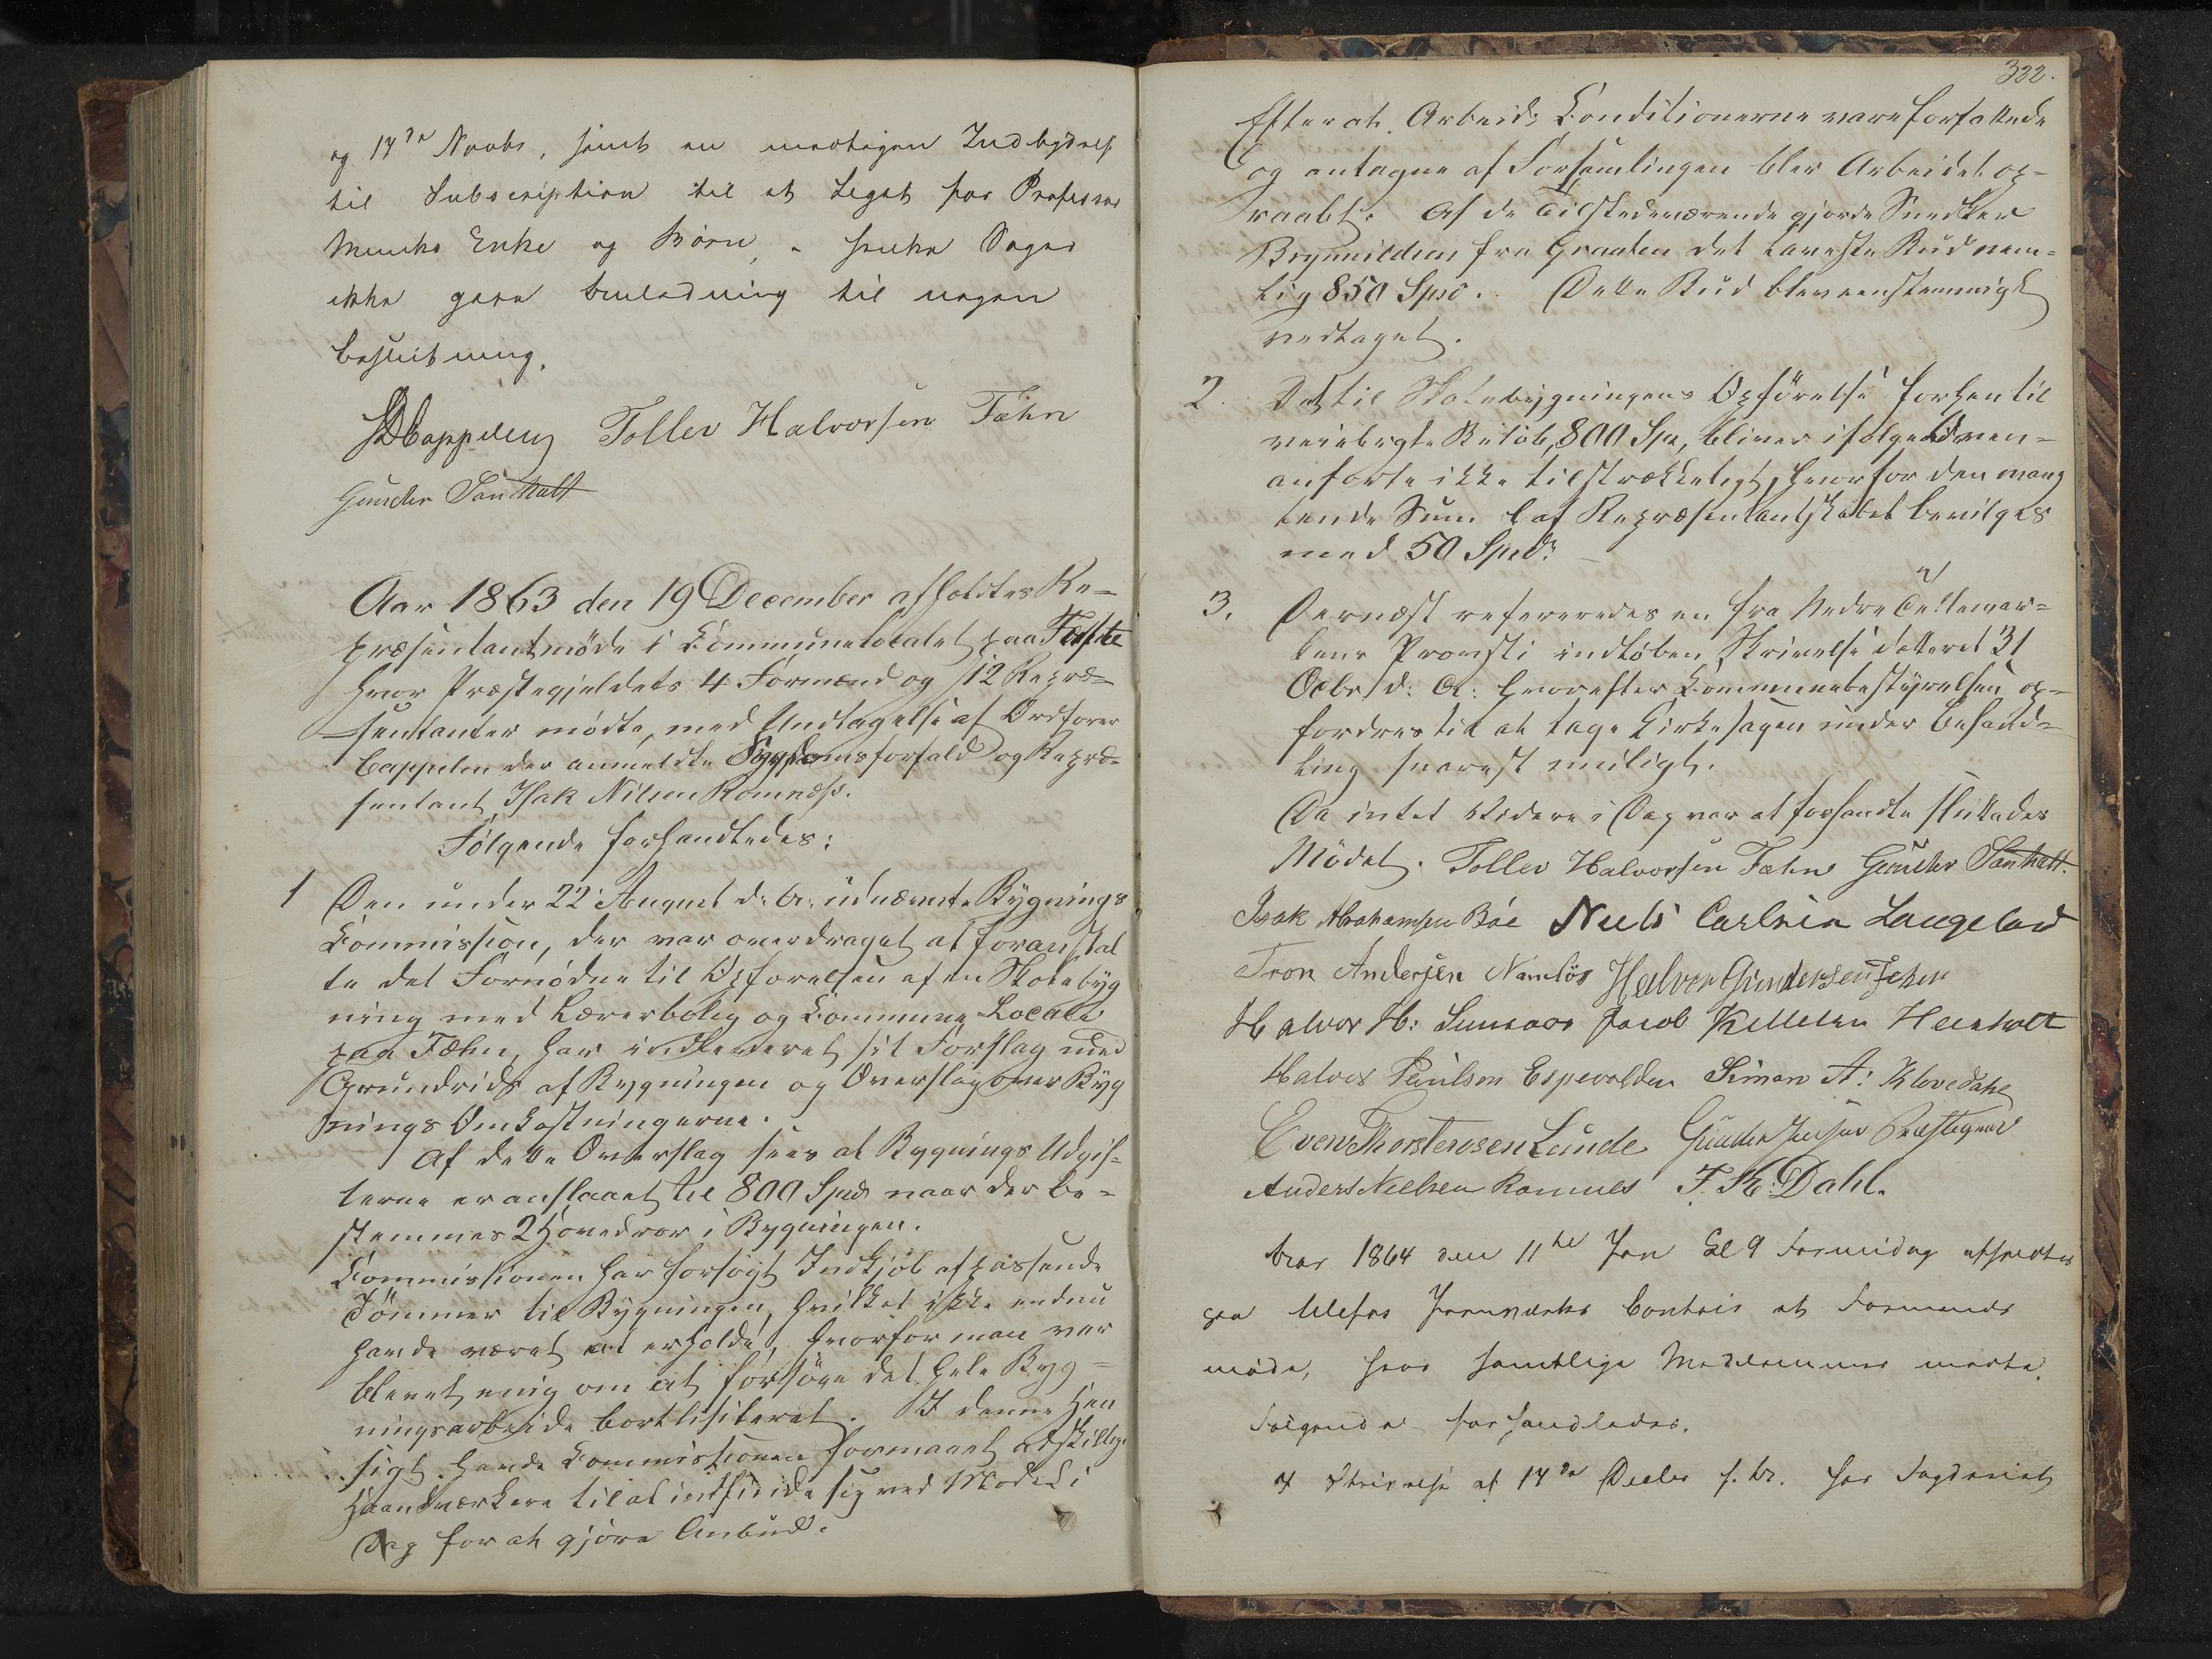 og 14de Novbr, samt en modtagen Indbydelse
til Subscription til et Legat for Professor
Munchs Enke og Børn, - hvilke Sager
ikke gave Anledning til nogen
beslutning.
DCappelen Tollev Halvorsen Fæhn
Gunder Tanthalt
Aar 1863 den 19 December afholdtes Re-
præsentantmöde i Communelocalet paa
hvor Præstegjeldets 4 Formænd og 12 Repræ-
sentanter mödte, med Undtagelse af Ordförer
Cappelen der anmeldte Sygdomsforfald og Repræ-
sentant Isak Nilsen Romnæss.
Følgende forhandledes:
1 Den under 22 August d. A. udnævnte Bygnings
Commission, der var overdraget at foranstal
te det Fornödne til Opförelsen af en Skolebyg
ning med Lærerbolig og Commune Locale
paa Fæhn, har indleveret sit Forslag med
Grundrids af Bygningen og Overslag over Byg
nings Omkostningerne.
Af dette Overslag sees at Bygnings Udgif-
terne er anslaaet til 800 Spd naar der be-
stemmes 2 Hovedror i Bygningen.
Commissionen har forsögt Indkjöb af passende
Tömmer til Bygningen, hvilket ikke endnu
havde været at erholde, hvorfor man var
blevet enig om at forsöge det hele Byg-
ningsarbeide bortlisiteret. I denne Hen
sigt havde Commissionen formaaet adskillige
Haandværkere til at indfinde sig ved Mödet i
Dag for at gjöre Anbud.
322.
Efter at Arbeids Conditionerne vare forfattede
og antagne af Forsamlingen blev Arbeidet op-
raabt. Af de Tilstedeværende gjorde Snedker
Brynnildsen fra Graaten det laveste Bud nem-
lig 850 Spd. Dette Bud blev eenstemmigt
vedtaget.
2. Det til Skolebygningens Opförelse forhen til
veiebragte Belöb, 800 Spd, bliver ifölge Oven-
anförte ikke tilstrækkeligt, hvorfor den mang
lende Sum af Repræsentantskabet bevilges
med 50 Spd.
3. Dernæst refereredes en fra Nedre Tellemar-
kens Provsti indlöben Skrivelse dateret 31
Octbr d. A. hvorefter Communebestyrelsen op-
fordres til at tage Kirkesagen under Behand-
ling snarest muligt.
Da intet videre i Dag var at forhandle sluttedes
Mödet. Tollev Halvorsen Fæhn Gunder Tanthalt.
Isak Abrahamsen Böe Neels Carlsen Langeland
Tron Andersen Namlös Halvor Gundersen Fehn
Halvor H: Sunsaas Jacob Kittelsen Heisholt
Halvor Paulsen Espevolden Simon A: Klovedahl
Even Thorstensen Lunde Gunder Jensen Præstegaard
Anders Neelsen Romnes F. K. Dahl.
Aar 1864 den 11te Jan Kl 9 Formidag afholdtes
paa Ulefos Jernværks Contoir et Formands
möde, hvor samtlige Medlemmer mødte.
Følgende forhandledes.
I Skrivelse af 14de Decbr f. Ar. har Fogderiet